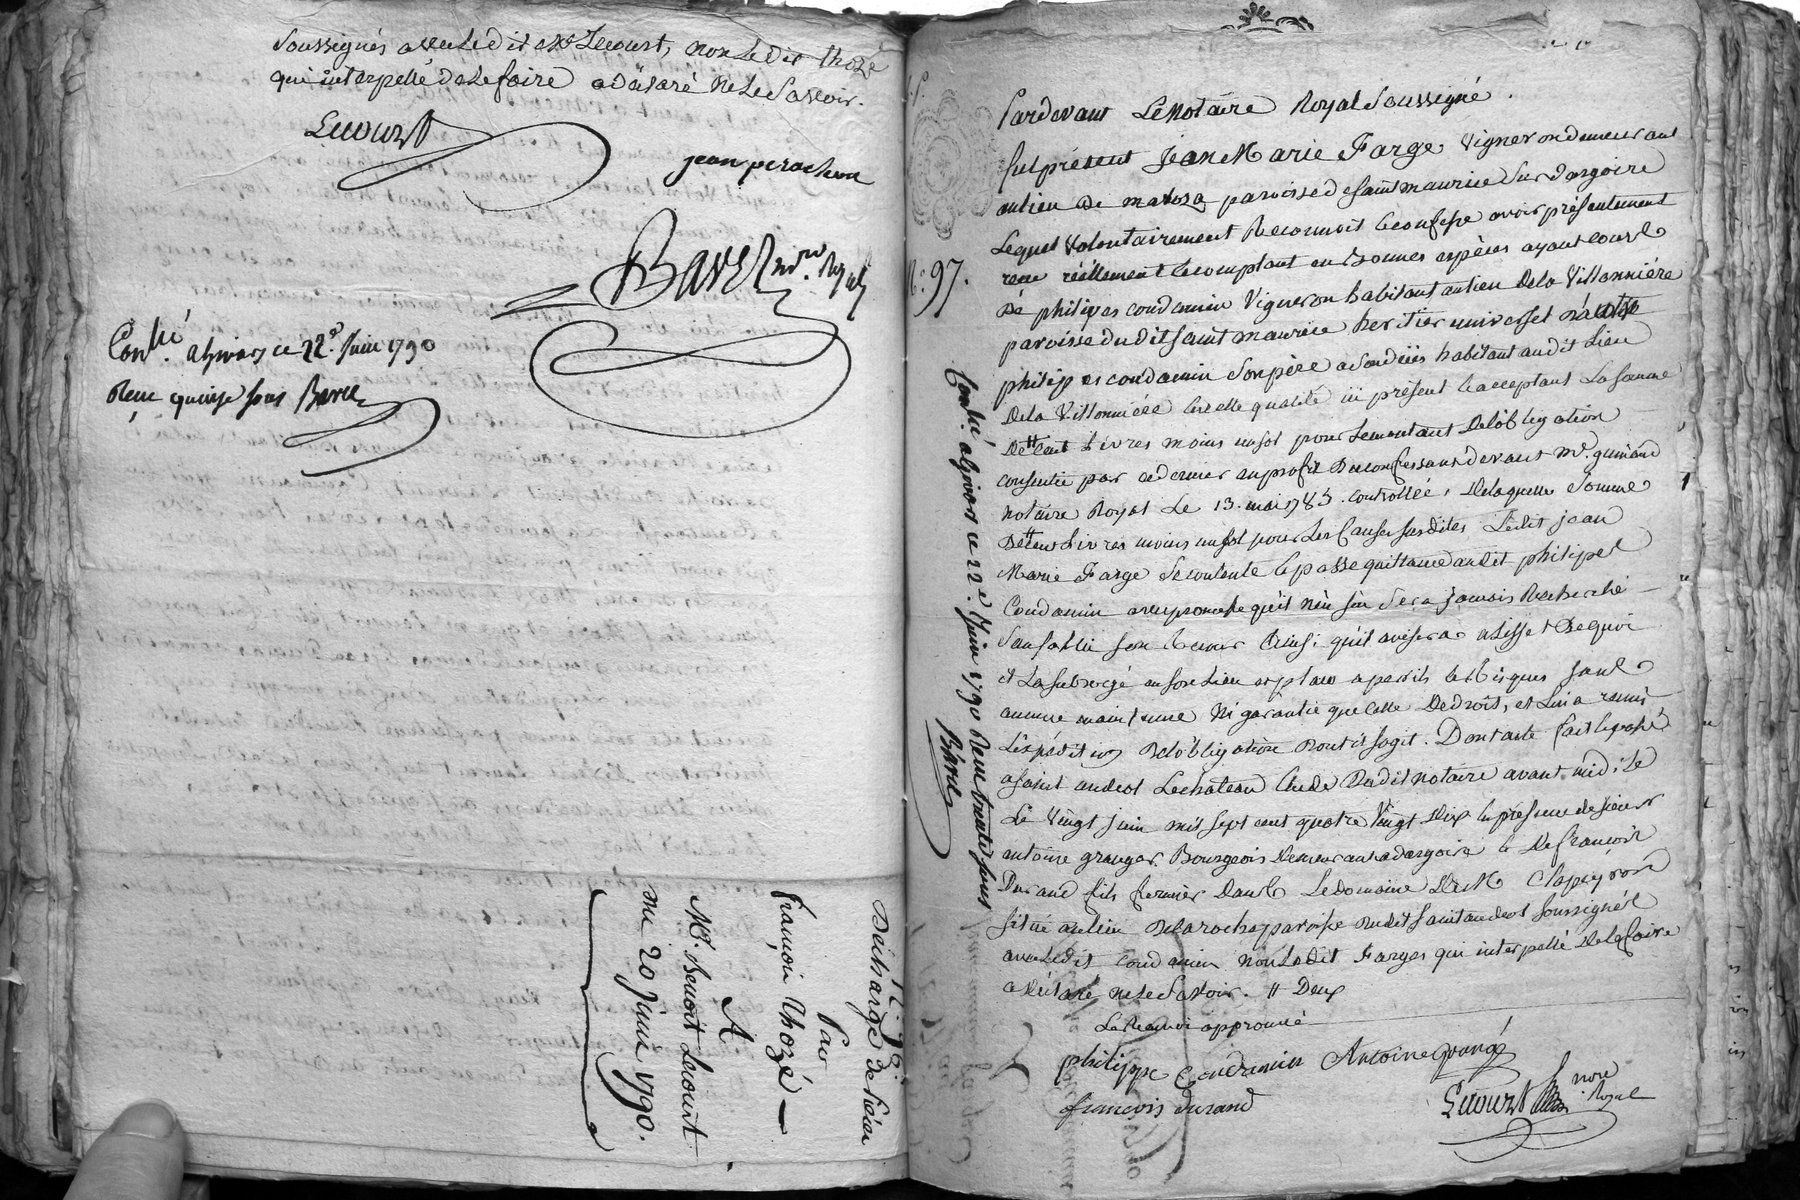 Soussignés avec ledit Me Lecourt, non ledit thozé
qui interpellé de le faire a déclaré ne le savoir.
Lecourt
jean perachon
Barel nore Royal
Conlé a givors ce 22e Juin 1790
Recu quinze sous Barel
N. 96.
Décharge de Pièces
Par
françois Thozé
A
Me. Benoit Lecourt
du 20 juin 1790.
N° 97.
Pardevant Le Notaire Royal Soussigné
fut présent Jean Marie Farge vigneron demeurant
au lieu de paroisse de saint maurice sur dargoire
Lequel volontairement Reconnoit & confesse avoir présentement
recu réellement & comptant en bonnes espèces ayant cours
de philipes condamin vigneron habitant au lieu de la villonnière
paroisse dudit saint maurice heritier universel
philippes condamin son père a son décès habitant audit Lieu
de la villonnière en cette qualité ici présent & acceptant La somme
De cent Livres moins un sol pour Le montant de l'obligation
consentie par ce dernier au profit du confessant devant Me. guinand
notaire Royal Le 13. mai 1783. controllée, de laquelle somme
De cent Livres moins un sol pour les causes susdites Ledit jean
Marie Farge se contente & passe quittance audit philipes
Condamin avec promesse qu'il n'en sera jamais Recherché
sauf a lui son Recours ainsi qu'il avisera a l'effet de quoi
il l'a subrogé en son Lieu et place a perils & Risques sans
aucune maintenue Ni garantie que celle de droit, et lui a remis
L'expédition de l'obligation dont il s'agit. Dont acte fait & passé
a saint andeol Lechateau Etude dudit notaire avant midi le
Le vingt juin mil sept cent quatre vingt dix en présence de sieur
antoine granger Bourgeois demeurant a dargoire & de francois
Durand fils fermier dans Le domaine de M Clapeyron
situé au lieu de la roche paroisse dudit saint andeol soussignés
avec Ledit condamin non Ledit Farges qui interpellé de le faire
a déclaré ne le savoir. # Deux
Le Renvoi approuvé
philippe Condamin Antoine Grangé
francois durand
Lecourt nore Royal
Conlé a givors ce 22e Juin 1790 Recu trente sous
Barel